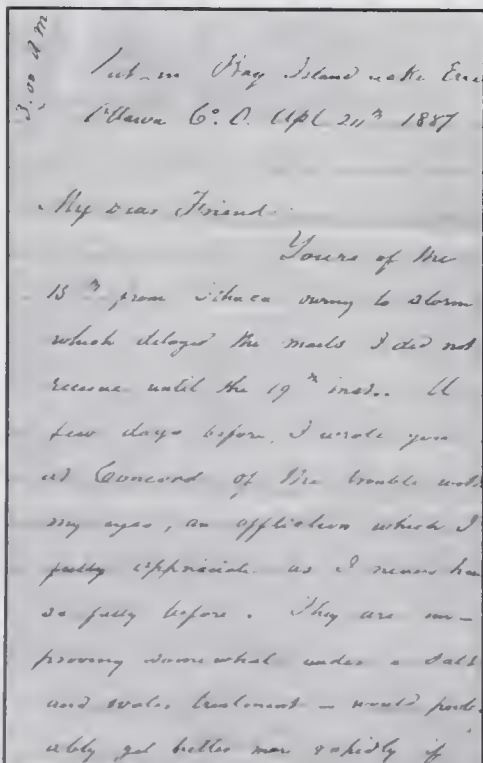 3,00 AM
Put-in Bay Island Lake Erie
Ottawa Co. O. Apl 20th 1887
My dear Friend.
Yours of the
15th from Ithaca owing to storm
which delayed the mails I did not
receive until the 19th inst.. A
few days before, I wrote you
at Concord of the trouble with
my eyes, an affliction which I
fully appreciate as I never have
so fully before. They are im-
proving somewhat under a salt
and water treatment – would prob-
ably get better more rapidly if